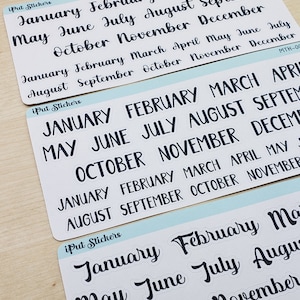 January February
May June July August September
October November December
January February March April May June July
August September October November December
iPut Stickers
MTH-
iPut Stickers
JANUARY FEBRUARY MARCH APRIL
MAY JUNE JULY AUGUST SEPTEM
OCTOBER NOVEMBER DECEM
JANUARY FEBRUARY MARCH APRIL MAY
AUGUST SEPTEMBER OCTOBER NOVEMBER
iPut Stickers
January February Ma
May June July Augus